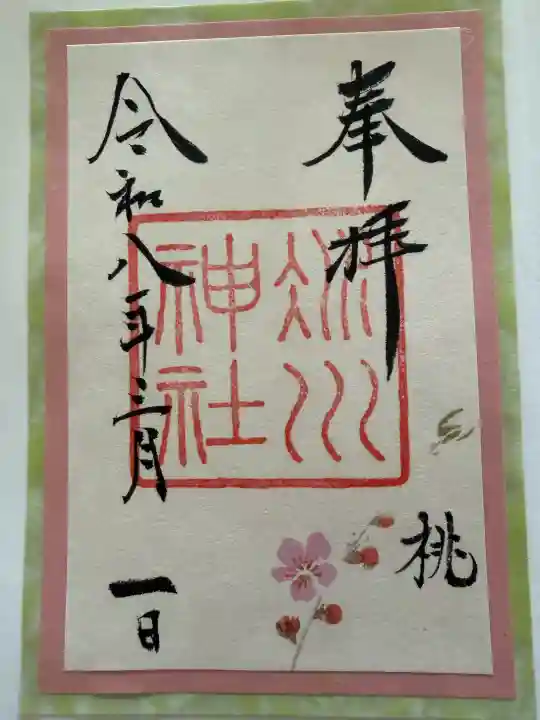 奉拝
桃
冰川
神社
令和八年三月一日